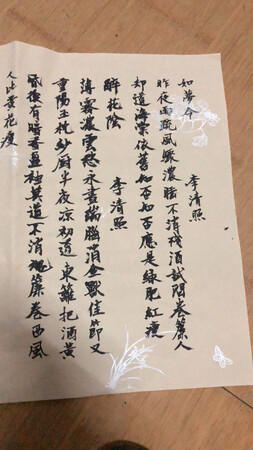 如夢令 李清照
昨夜雨疏風驟濃睡不消殘酒試問卷簾人
却道海棠依舊知否知否應是綠肥紅瘦
醉花陰 李清照
薄霧濃雲愁永晝瑞腦消金獸佳節又
重陽玉枕紗厨半夜涼初透東籬把酒黄
昏後有暗香盈袖莫道不消魂簾卷西風
人比黄花瘦